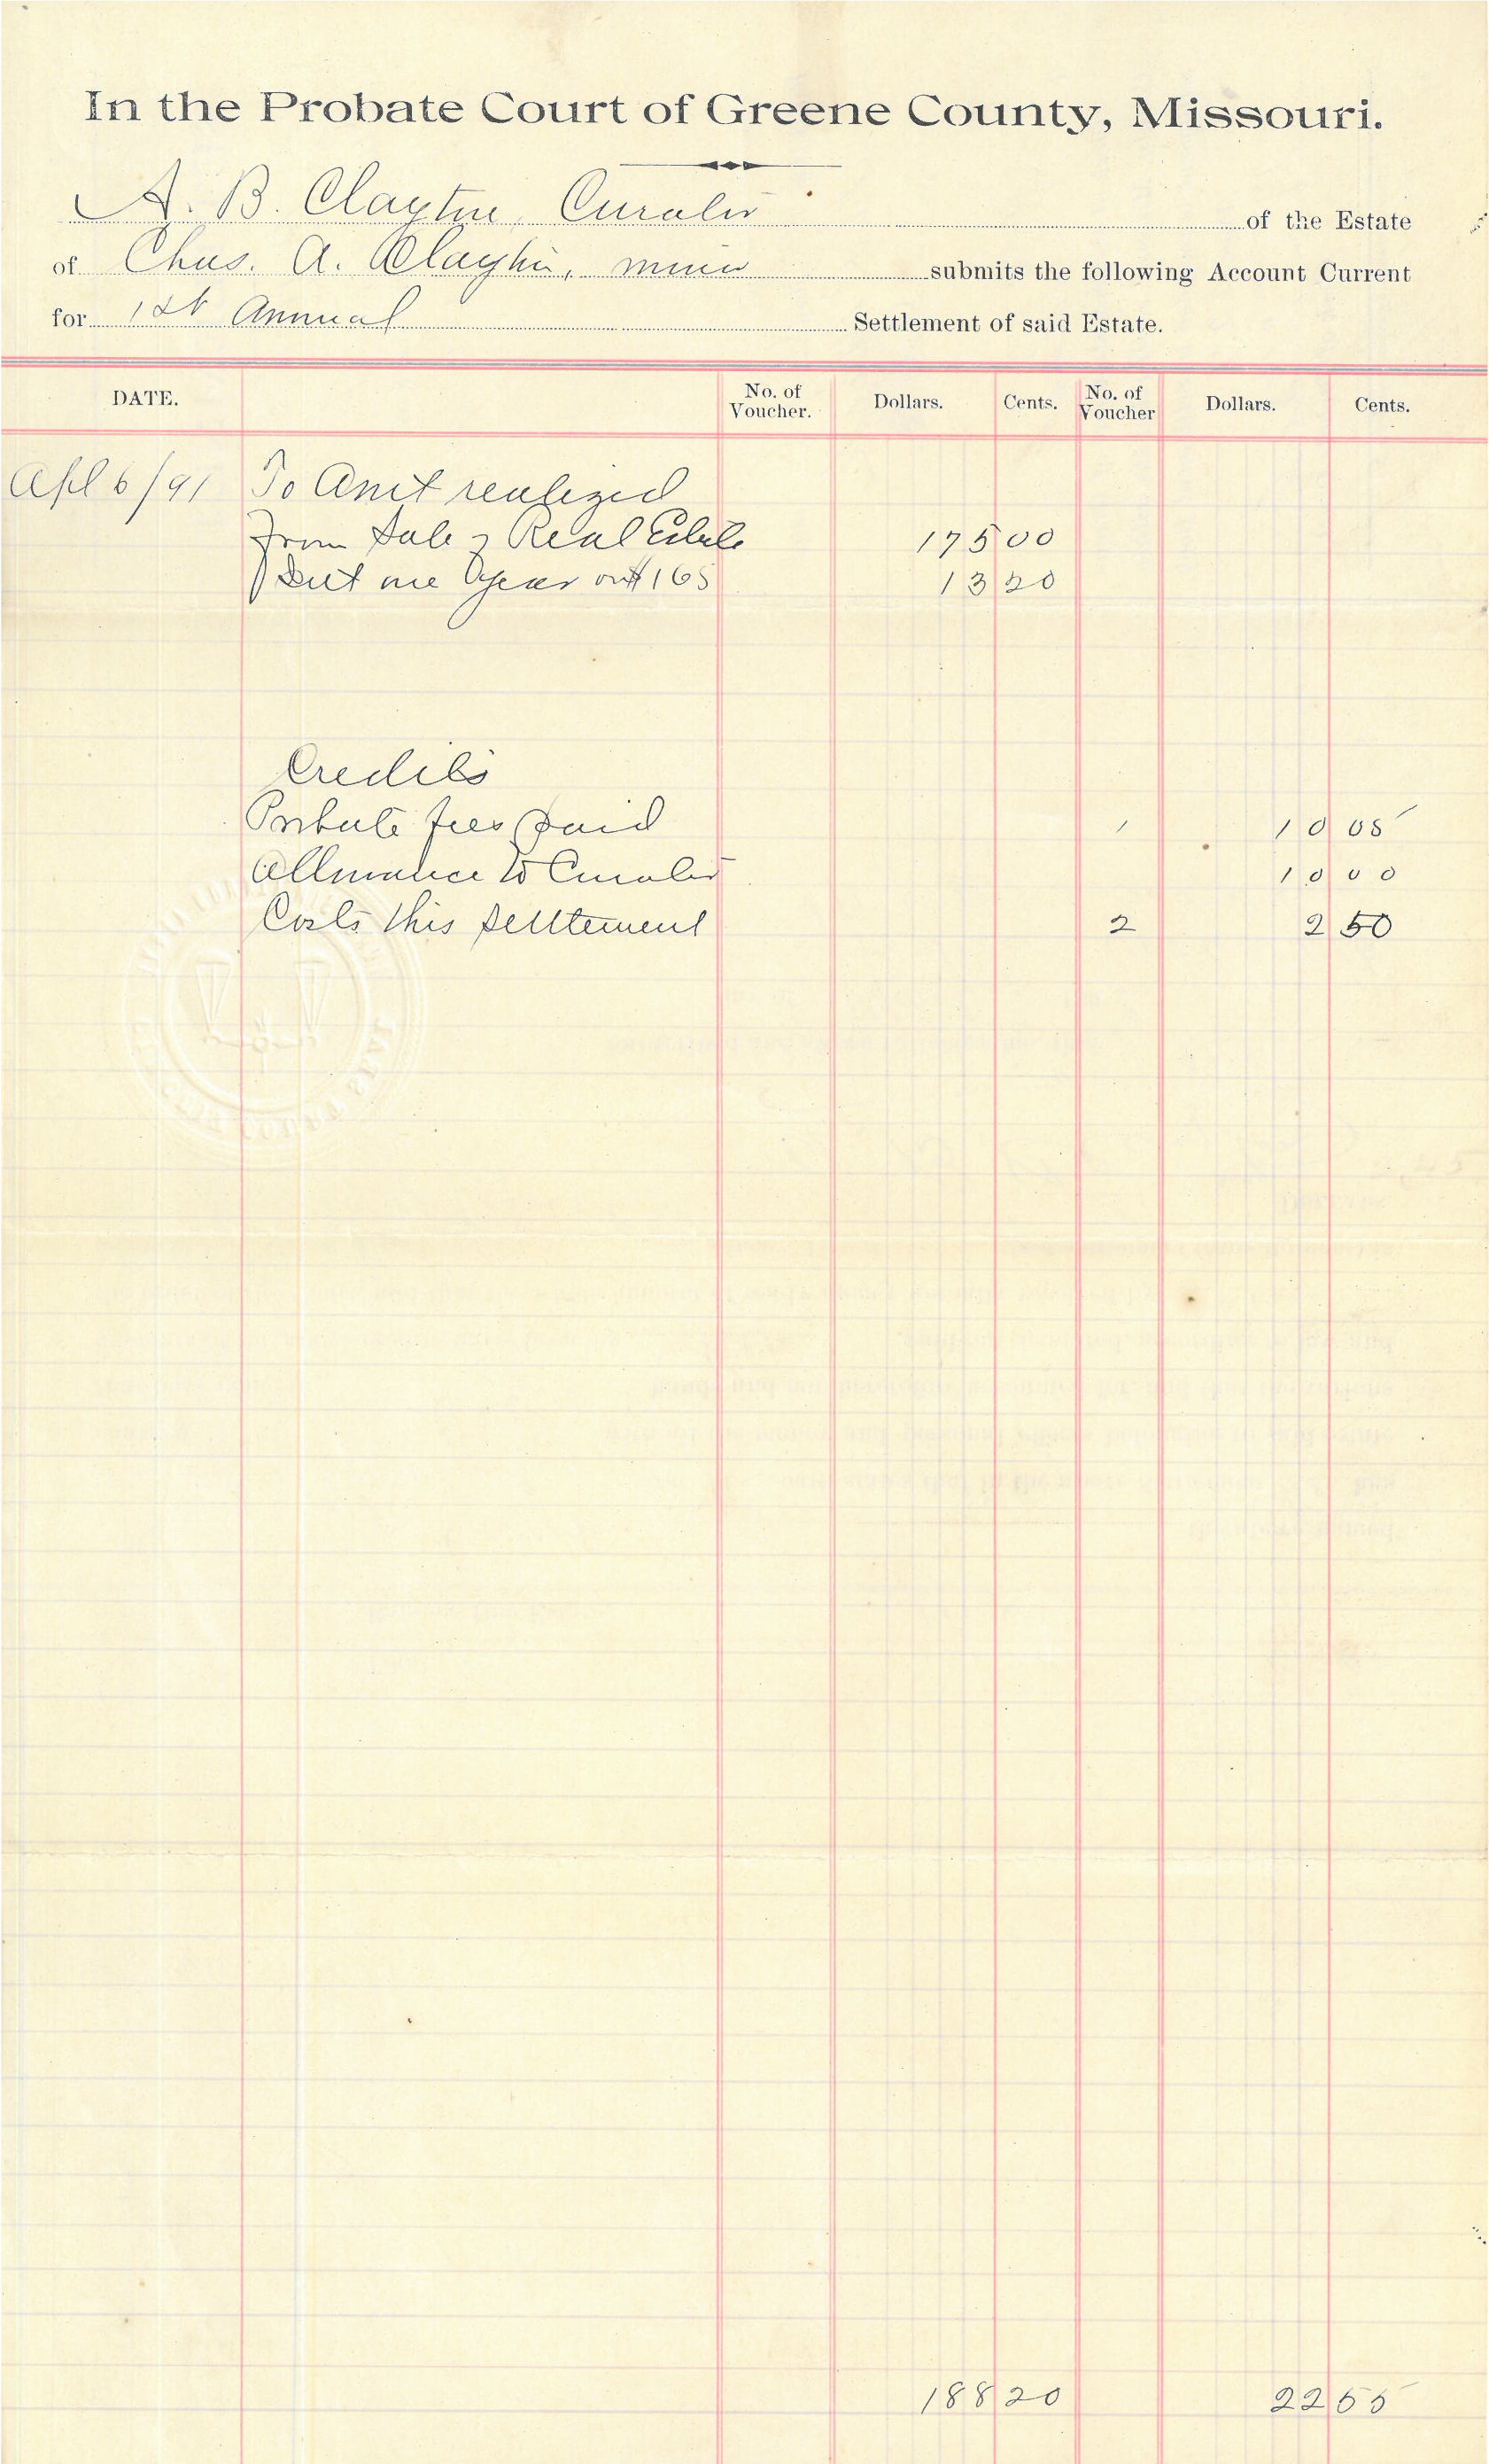 In the Probate Court of Greene County, Missouri.
A. B. Clayton Curator of the Estate
of Chas. A. Clayton, minor submits the following Account Current
for 1st Annual Settlement of said Estate.
DATE. No. of Voucher. Dollars. Cents. No. of Voucher Dollars. Cents.
Apl 6/91 To Amt realized
From Sale of Real Estate 175 00
Int one year on $165 13 20
Credits
Probate fees paid 1 10 05
Allowance to Curator 10 00
Costs this settlement 2 2 50
188 20 22 55